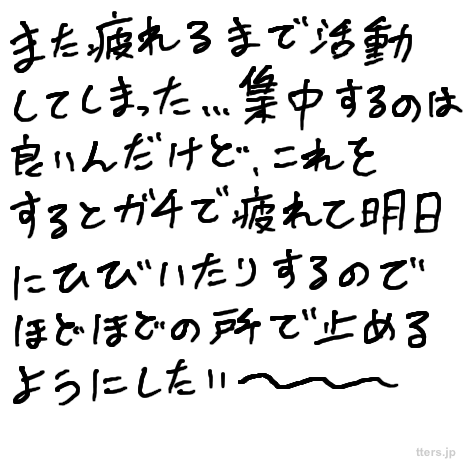 また疲れるまで活動
してしまった...集中するのは
良いんだけど、これを
するとガチで疲れて明日
にひびいたりするので
ほどほどの所で止める
ようにしたい〜〜〜
tters.jp